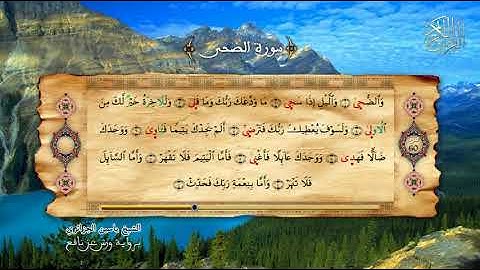 سورة الضحى
وَالضُّحَىٰ وَاللَّيْلِ إِذَا سَجَىٰ مَا وَدَّعَكَ رَبُّكَ وَمَا قَلَىٰ وَلَلَاخِرَةُ خَيْرٌ لَّكَ مِنَ
اَلُاولَىٰ وَلَسَوْفَ يُعْطِيكَ رَبُّكَ فَتَرْضَىٰ أَلَمْ يَجِدْكَ يَتِيمًا فَـَٔاوَىٰ وَوَجَدَكَ
ضَآلًّا فَهَدَىٰ وَوَجَدَكَ عَآئِلًا فَأَغْنَىٰ فَأَمَّا اَلْيَتِيمَ فَلَا تَقْهَرْ وَأَمَّا اَلسَّآئِلَ
فَلَا تَنْهَرْ وَأَمَّا بِنِعْمَةِ رَبِّكَ فَحَدِّثْ
60
الشيخ ياسين الجزائري
برواية ورش عن نافع